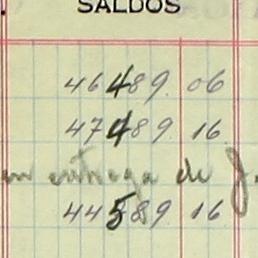 SALDOS
46489.06
47489.16
en entrega de
44589.16